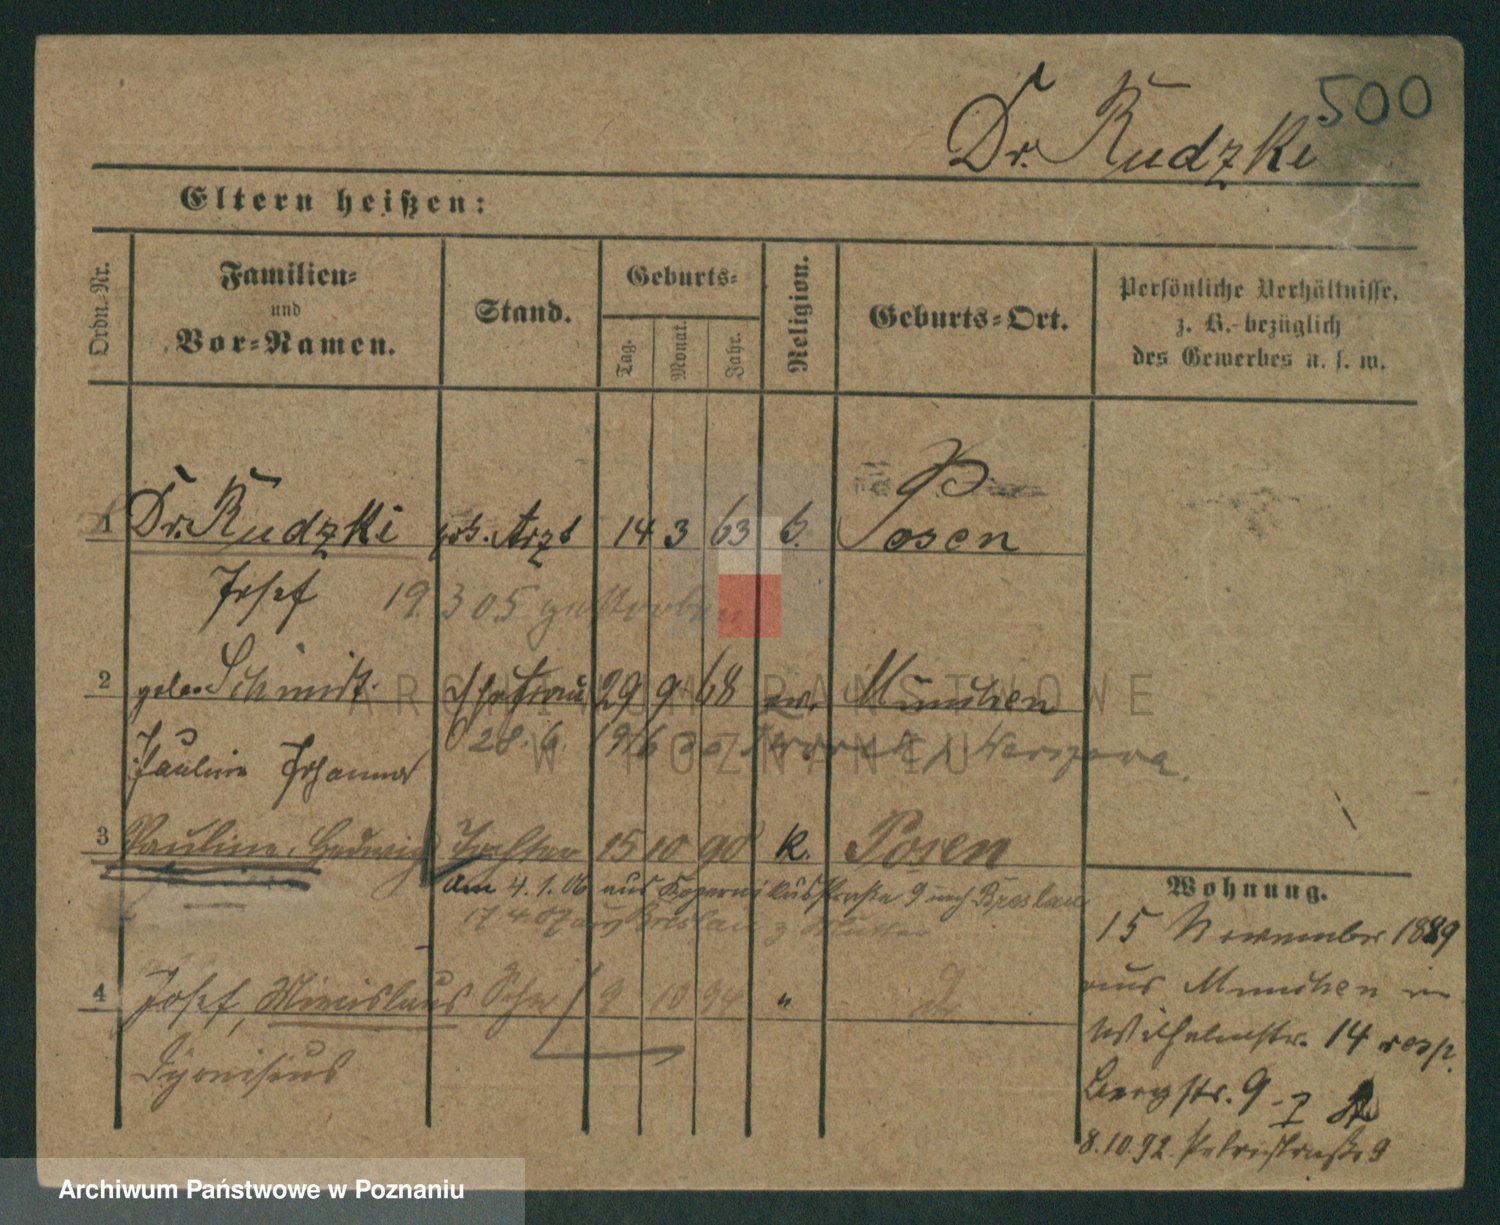 500
Dr. Rudzki
Eltern heißen:
Ordn.-Nr.
Familien-
und
Vor-Namen.
Stand.
Geburts-
Tag.
Monat.
Jahr.
Religion.
Geburts-Ort.
Persönliche Verhältnisse,
z. B. bezüglich
des Gewerbes u. s. w.
1 Dr. Rudzki Arzt 14 3 63 Posen
Josef 19 3 05 gestorben
2 geb. Schmidt Ehefrau 29 9 68 ev. München
28. 6.
Pauline Johanna
3 Pauline, Hedwig Tochter 15 10 90 k. Posen
am 4. 1. 06 aus Kopernikusstraße 9 nach Breslau
17 4 07 aus Breslau z Mutter
4 Josef, Miecislaus Sohn 9 10 94 "
Dyonisius
Wohnung.
15 November 1889
aus München in
Wilhelmstr. 14 resp.
Bergstr. 9
8. 10. 92. Petristraße 9
ARCHIWUM PAŃSTWOWE
W POZNANIU
Archiwum Państwowe w Poznaniu